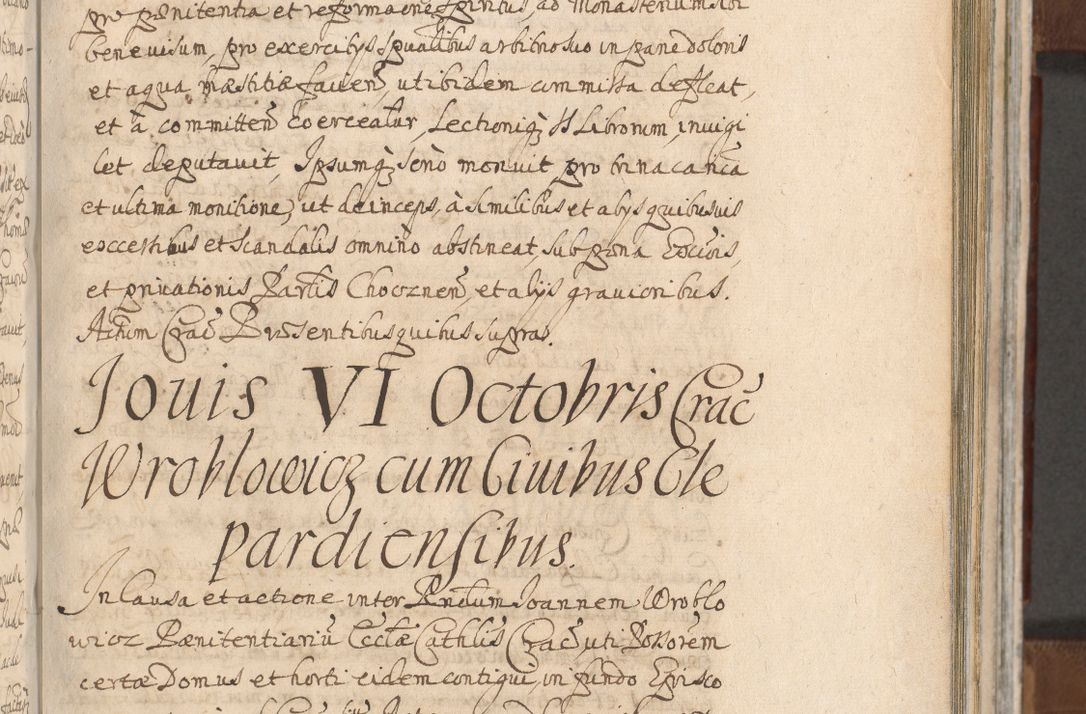 pro pœnitentia et reformaõne Spiritus, ad Monasterium sibi
bene uisum, pro exercitijs spũalibus arbitrio suo in pane doloris
et aqua mæstitiæ facien̄, ut ibidem commissa defleat,
et à committen̄ coerceatur, Lectioniq̃ SS Librorum, inuigi
let deputauit, Ipsumq̃ serio monuit pro trina canõca
et ultima monitione, ut deinceps, à similibus et alijs quibusuis
excessibus et scandalis omnino abstineat, sub pœna Excõis,
et priuationis Partis Choczneñ, et alijs grauioribus.
Actum Crac̃ Præsentibus quibus supras.
Jouis VI Octobris Crac̃
Wroblowicz cum Ciuibus Cle
pardiensibus.
In Causa et actione inter Rñdum Joannem Wroblo
wicz Pænitentiariũ Ecclæ Cathlis Crac̃ uti Possorem
certæ Domus et horti eidem contigui, in fundo Episco